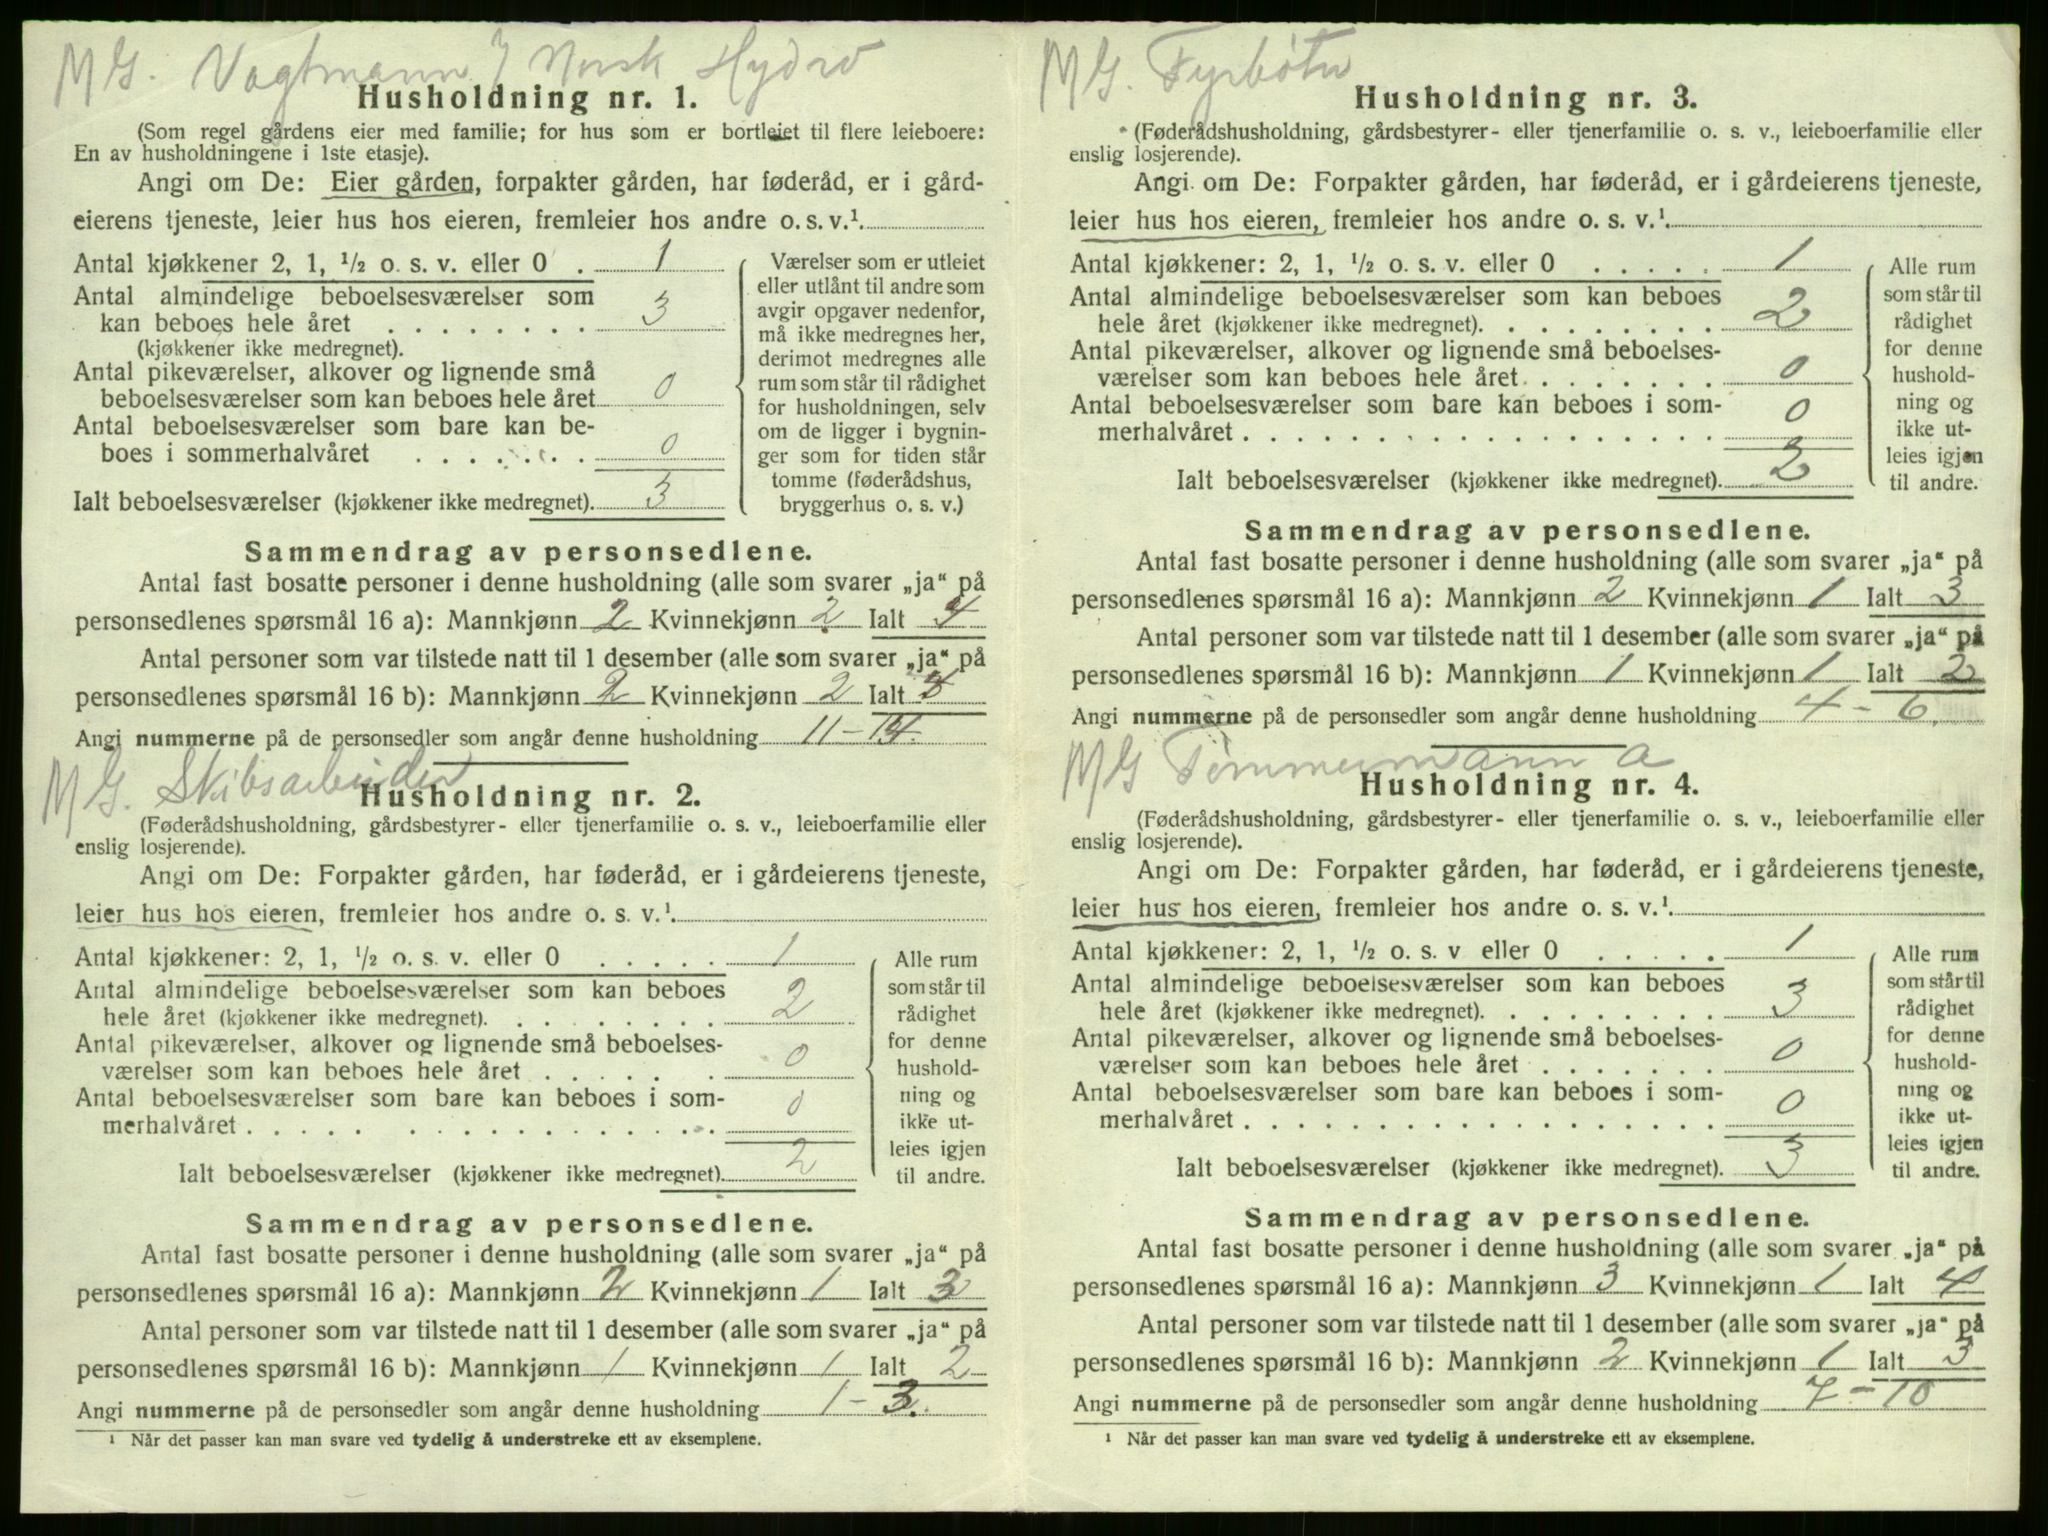 M G. Vagtmann v Norsk Hydro
Husholdning nr. 1.
(Som regel gårdens eier med familie; for hus som er bortleiet til flere leieboere:
En av husholdningene i 1ste etasje).
Angi om De: Eier gården, forpakter gården, har føderåd, er i gård-
eierens tjeneste, leier hus hos eieren, fremleier hos andre o. s. v.¹
Antal kjøkkener 2, 1, ½ o. s. v. eller 0 . 1
Antal almindelige beboelsesværelser som
kan beboes hele året . . . . . . . . 3
(kjøkkener ikke medregnet).
Antal pikeværelser, alkover og lignende små
beboelsesværelser som kan beboes hele året 0
Antal beboelsesværelser som bare kan be-
boes i sommerhalvåret . . . . . . . 0
Ialt beboelsesværelser (kjøkkener ikke medregnet). 3
Værelser som er utleiet
eller utlånt til andre som
avgir opgaver nedenfor,
må ikke medregnes her,
derimot medregnes alle
rum som står til rådighet
for husholdningen, selv
om de ligger i bygnin-
ger som for tiden står
tomme (føderådshus,
bryggerhus o. s. v.)
Sammendrag av personsedlene.
Antal fast bosatte personer i denne husholdning (alle som svarer „ja“ på
personsedlenes spørsmål 16 a): Mannkjønn 2 Kvinnekjønn 2 Ialt 4
Antal personer som var tilstede natt til 1 desember (alle som svarer „ja“ på
personsedlenes spørsmål 16 b): Mannkjønn 2 Kvinnekjønn 2 Ialt 4
Angi nummerne på de personsedler som angår denne husholdning 11-14.
M G. Skibsarbeider
Husholdning nr. 2.
(Føderådshusholdning, gårdsbestyrer- eller tjenerfamilie o. s. v., leieboerfamilie eller
enslig losjerende).
Angi om De: Forpakter gården, har føderåd, er i gårdeierens tjeneste,
leier hus hos eieren, fremleier hos andre o. s. v.¹
Antal kjøkkener: 2, 1, ½ o. s. v. eller 0 . . . . . 1
Antal almindelige beboelsesværelser som kan beboes
hele året (kjøkkener ikke medregnet). . . . . . . . 2
Antal pikeværelser, alkover og lignende små beboelses-
værelser som kan beboes hele året . . . . . . . 0
Antal beboelsesværelser som bare kan beboes i som-
merhalvåret . . . . . . . . . . . . . . . . . . 0
Ialt beboelsesværelser (kjøkkener ikke medregnet). 2
Alle rum
som står til
rådighet
for denne
hushold-
ning og
ikke ut-
leies igjen
til andre.
Sammendrag av personsedlene.
Antal fast bosatte personer i denne husholdning (alle som svarer „ja“ på
personsedlenes spørsmål 16 a): Mannkjønn 2 Kvinnekjønn 1 Ialt 3
Antal personer som var tilstede natt til 1 desember (alle som svarer „ja“ på
personsedlenes spørsmål 16 b): Mannkjønn 1 Kvinnekjønn 1 Ialt 2
Angi nummerne på de personsedler som angår denne husholdning 1-3.
¹ Når det passer kan man svare ved tydelig å understreke ett av eksemplene.
M G. Fyrbøter
Husholdning nr. 3.
(Føderådshusholdning, gårdsbestyrer- eller tjenerfamilie o. s. v., leieboerfamilie eller
enslig losjerende).
Angi om De: Forpakter gården, har føderåd, er i gårdeierens tjeneste,
leier hus hos eieren, fremleier hos andre o. s. v.¹
Antal kjøkkener: 2, 1, ½ o. s. v. eller 0 . . . . . 1
Antal almindelige beboelsesværelser som kan beboes
hele året (kjøkkener ikke medregnet). . . . . . . . 2
Antal pikeværelser, alkover og lignende små beboelses-
værelser som kan beboes hele året . . . . . . . 0
Antal beboelsesværelser som bare kan beboes i som-
merhalvåret . . . . . . . . . . . . . . . . . . 0
Ialt beboelsesværelser (kjøkkener ikke medregnet). 2
Alle rum
som står til
rådighet
for denne
hushold-
ning og
ikke ut-
leies igjen
til andre.
Sammendrag av personsedlene.
Antal fast bosatte personer i denne husholdning (alle som svarer „ja“ på
personsedlenes spørsmål 16 a): Mannkjønn 2 Kvinnekjønn 1 Ialt 3
Antal personer som var tilstede natt til 1 desember (alle som svarer „ja“ på
personsedlenes spørsmål 16 b): Mannkjønn 1 Kvinnekjønn 1 Ialt 2
Angi nummerne på de personsedler som angår denne husholdning 4-6.
M G Tømmermann a
Husholdning nr. 4.
(Føderådshusholdning, gårdsbestyrer- eller tjenerfamilie o. s. v., leieboerfamilie eller
enslig losjerende).
Angi om De: Forpakter gården, har føderåd, er i gårdeierens tjeneste,
leier hus hos eieren, fremleier hos andre o. s. v.¹
Antal kjøkkener: 2, 1, ½ o. s. v eller 0 . . . . . 1
Antal almindelige beboelsesværelser som kan beboes
hele året (kjøkkener ikke medregnet). . . . . . . . 3
Antal pikeværelser, alkover og lignende små beboelses-
værelser som kan beboes hele året . . . . . . . 0
Antal beboelsesværelser som bare kan beboes i som-
merhalvåret . . . . . . . . . . . . . . . . . . 0
Ialt beboelsesværelser (kjøkkener ikke medregnet). 3
Alle rum
som står til
rådighet
for denne
hushold-
ning og
ikke ut-
leies igjen
til andre.
Sammendrag av personsedlene.
Antal fast bosatte personer i denne husholdning (alle som svarer „ja“ på
personsedlenes spørsmål 16 a): Mannkjønn 3 Kvinnekjønn 1 Ialt 4
Antal personer som var tilstede natt til 1 desember (alle som svarer „ja“ på
personsedlenes spørsmål 16 b): Mannkjønn 2 Kvinnekjønn 1 Ialt 3
Angi nummerne på de personsedler som angår denne husholdning 7-10
¹ Når det passer kan man svare ved tydelig å understreke ett av eksemplene.